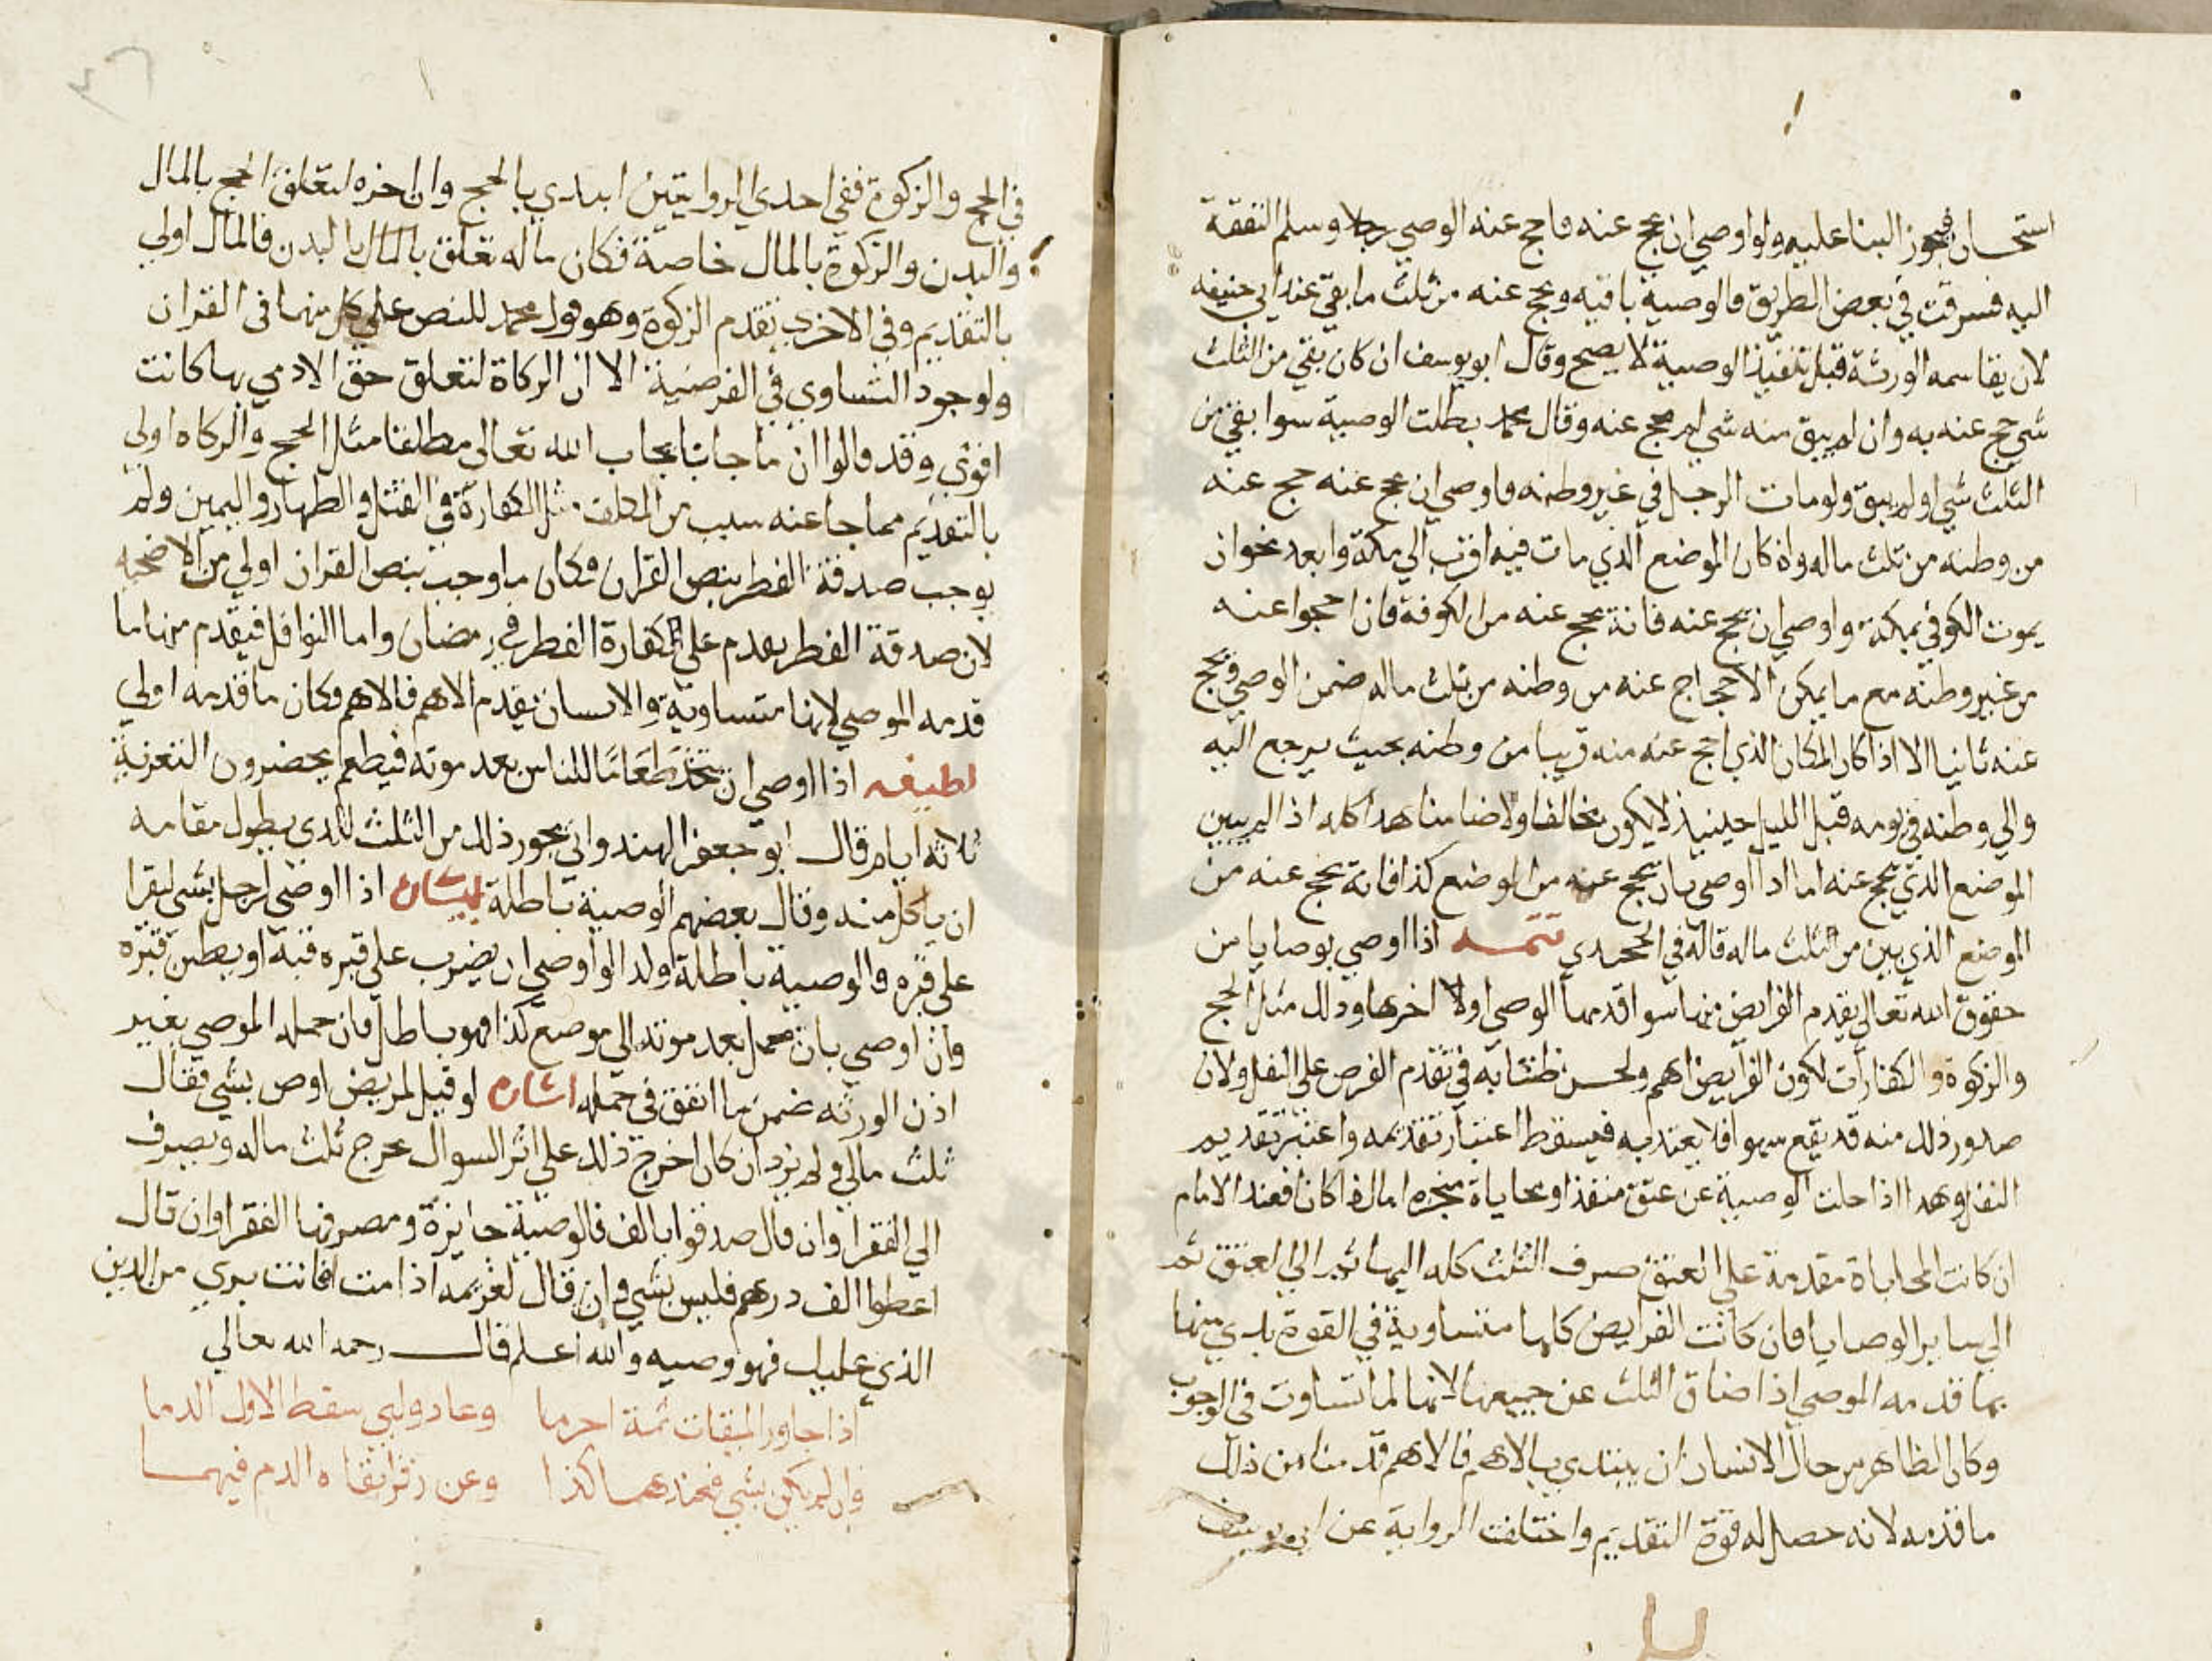 استحسان فيجوز البنا عليه ولو اوصي ان يحج عنه فاحج عنه الوصي رجلا وسلم النفقة
اليه فسرقت في بعض الطريق فالوصية باقيه ويحج عنه من ثلث ما بقي عند ابي حنيفه
لان يقاسمه الورثة قبل تنفيذ الوصية لا يصح وقال ابو يوسف ان كان بقي من الثلث
شي حج عنه به وان لم يبق منه شي لم يحج عنه وقال محمد بطلت الوصية سوا بقي من
الثلث شي او لم يبق ولو مات الرجل في غير وطنه واوصي ان يحج عنه حج عنه
من وطنه من ثلث ماله وان كان الموضع الذي مات فيه اقرب الي مكة وابعد نحو ان
يموت الكوفي بمكة واوصي ان يحج عنه فانه يحج عنه من الكوفة فان احجوا عنه
من غير وطنه مع ما يمكن الاحجاج عنه من وطنه من ثلث ماله ضمن الوصي ويحج
عنه ثانيا الا اذا كان المكان الذي احج عنه منه قريبا من وطنه بحيث يرجع اليه
والي وطنه في يومه قبل الليل حينيذ لا يكون مخالفا ولا ضامنا هدا كله اذا لم يبين
الموضع الذي يحج عنه اما اذا اوصي بان يحج عنه من الموضع كذا فانه يحج عنه من
الموضع الذي بين من ثلث ماله قاله في الحجندي تتمه اذا اوصي بوصايا من
حقوق الله تعالي يقدم الفرايض منها سوا قدمها الوصي اولا اخرها وذلك مثل الحج
والزكوة و الكفارات لكون الفرايض اهم ولحسن ظننا به في تقدم الفرض علي النفل ولان
صدور ذلك منه قد يقع سهوا فلا يعتد به فيسقط اعتبار تقديمه واعتبر تقديم
النفل وهدا اذا خلت الوصية عن عتق منفذ او محاباة منجزه اما اذا كانا فعند الامام
ان كانت المحاباة مقدمة علي العتق صرف الثلث كله اليها ثم الي العتق ثم
الي ساير الوصايا فان كانت الفرايض كلها متساوية في القوة بدي منها
بما قدمه الموصي اذا ضاق الثلث عن جميعها لانها لما تساوت في الوجوب
وكان الظاهر من حال الانسان ان يبتدي بالاهم فالاهم قدمنا من ذلك
ما قدمه لانه حصل له قوة التقديم واختلفت الرواية عن ابي يوسف
في الحج والزكوة ففي احدي الروايتين ابيدي بالحج وان اخره لتعلق الحج بالمال
والبدن والزكوة بالمال خاصة فكان ما له تعلق بالمال بالبدن فالمال اولي
بالتقديم وفي الاخري تقدم الزكوة وهو قول محمد للنص علي كل منهما في القران
ولوجود التساوي في الفرضية الا ان الزكاة لتعلق حق الادمي بها كانت
اقوي وقد قالوا ان ما جا بايجاب الله تعالي مطلقا مثل الحج والزكاه اولي
بالتقديم مما جا عنه سبب من المكلف مثل الكفارة في القتل والظهار واليمين ولم
يوجب صدقة الفطر بنص القران فكان ما وجب بنص القران اولي من الاضحيه
لان صدقة الفطر يقدم علي كفارة الفطر في رمضان واما النوافل فيقدم منها ما
قدمه الموصي لانها متساوية والانسان يقدم الاهم فالاهم وكان ما قدمه اولي
لطيفه اذا اوصي ان يتخذ طعاما للناس بعد موته فيطعم يحضرون التعزية
ثلاثه ايام قال ابو جعفر الهندواني يجوز ذلك من الثلث للذي يطول مقامه
ان ياكل منه وقال بعضهم الوصية باطلة اذا اوصي لرجل بشي ليقرا
علي قبره فالوصية باطلة ولذا لو اوصي ان يضرب علي قبره قبة او يطين قبره
وان اوصي بان يحمل بعد موته الي موضع كذا فهو باطل فان حمله الموصي بغير
اذن الورثه ضمن ما انفق في حمله اشاره لو قيل لمريض اوص بشي فقال
ثلث مالي ولم يزد ان كان اخرج ذلك علي اثر السوال يخرج ثلث ماله ويصرف
الي الفقرا وان قال صدقوا بالف فالوصية جايزة ومصرفها الفقرا وان قال
اعطوا الف درهم فليس بشي وان قال لغريمه اذا مت فانت بري من الدين
الذي عليك فهو وصيه والله اعلم قال رحمه الله تعالي
اذا جاوز الميقات ثمة احرما وعاد ولبي سقط الاول الدما
وان لم يكن بشي فعندهما كذا وعن زفر ابقاه الدم فيهما